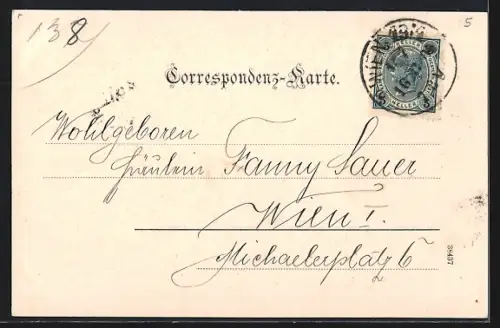 138
5
Correspondenz-Karte.
WIEN
HELLER
Wohlgeboren
Fräulein Fanny Sauer
Wien I.
Michaelerplatz 6
38437